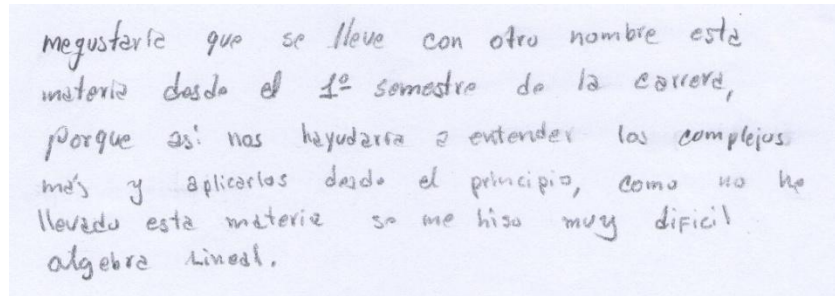 megustaria que se lleve con otro nombre esta
materia desde el 1º semestre de la carrera,
porque asi nos hayudaria a entender los complejos
más y aplicarlos desde el principio, como no he
llevado esta materia se me hiso muy dificil
algebra Lineal.